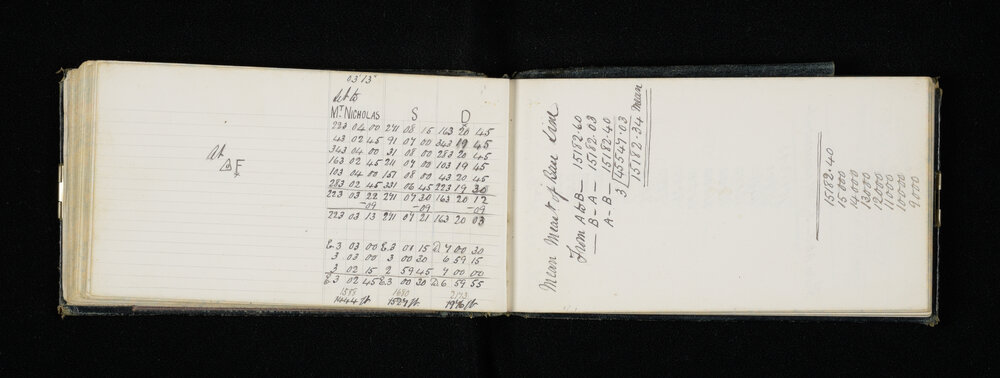 03' 13"
Mᵀ NICHOLAS S D
223 04 00 271 08 15 163 20 45
43 02 45 91 07 00 343 19 45
343 04 00 31 08 00 283 20 45
163 02 45 211 07 00 103 19 45
103 04 00 151 08 00 43 20 45
283 02 45 331 06 45 223 19 30
223 03 22 271 07 30 163 20 12
-09 -09 -09
223 03 13 271 07 21 163 20 03
at
△ F
E. 3 03 00 E. 3 01 15 D. 7 00 30
3 03 00 3 00 30 6 59 15
3 02 15 2 59 45 7 00 00
E. 3 02 45 E. 3 00 30 D. 6 59 55
1444 ft 1529 ft 1976 ft
Mean Measᵗ of Base Line
From A to B — 15182.60
— B - A — 15182.03
A - B — 15182.40
3 45547.03
15182.34 mean
15182.40
15000
14000
13000
12000
11000
10000
9000